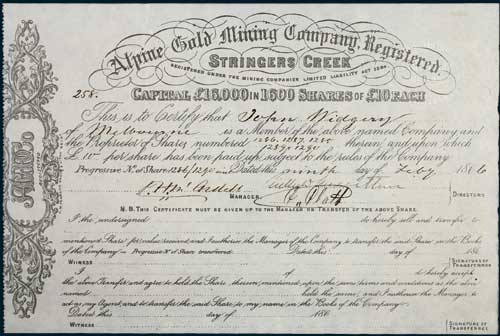 Alpine Gold Mining Company, Registered.
STRINGERS CREEK
REGISTERED UNDER THE MINING COMPANIES LIMITED LIABILITY ACT 1864.
CAPITAL £16,000 IN 1600 SHARES OF £10 EACH
258.
This is to Certify that John
of Melbourne is a Member of the above named Company and
the Proprietor of Shares numbered 1286. 1287. 1288
1289. 1290 therein, and upon which
£10 per share has been paid up, subject to the rules of the Company
Progressive No. of Share 1286/1290 Dated this ninth day of Feby 1866
MANAGER
N.B. THIS CERTIFICATE MUST BE GIVEN UP TO THE MANAGER ON TRANSFER OF THE ABOVE SHARE.
I the undersigned do hereby sell and transfer
to the above
mentioned Share for value received, and I authorise the Manager of the Company to transfer the said Share in the Books
of the Company — Progressive No. of Share transferred Dated this day of 186
WITNESS
SIGNATURE OF TRANSFERROR
I of do hereby accept
the above Transfer and agree to hold the Share therein mentioned, upon the same terms and conditions as the above
named held the same, and I authorise the Manager to
act as my Agent, and to transfer the said Share to my name in the Books of the Company.
Dated this day of 186
WITNESS
SIGNATURE OF TRANSFEREE